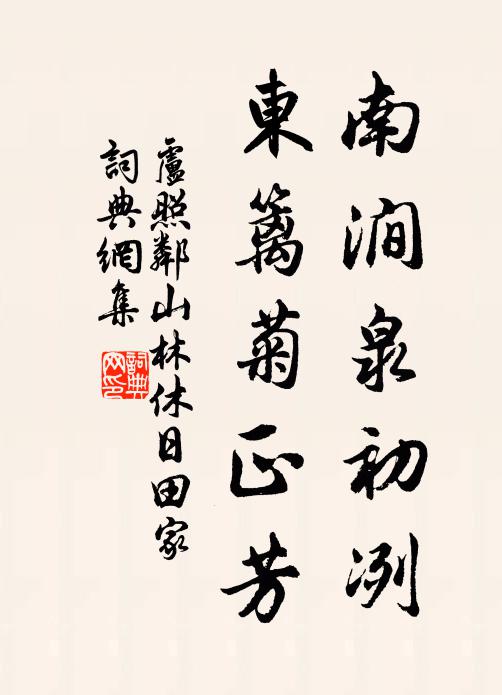 南澗泉初冽
東篱菊正芳
盧照鄰山林休日田家
詞典網集
詞典網印